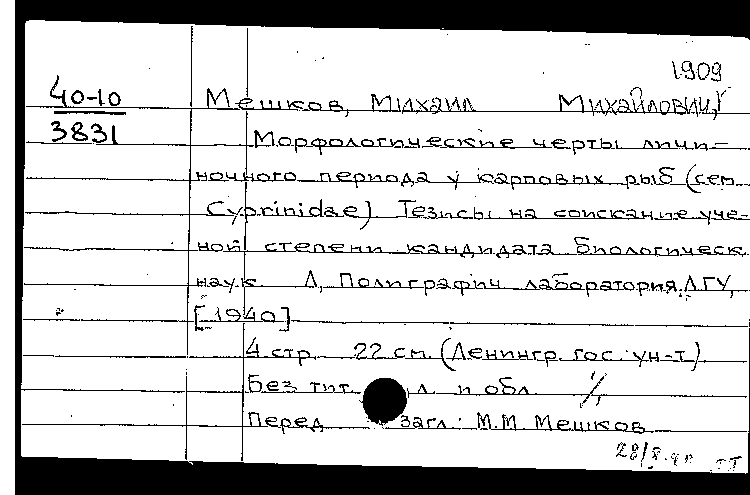 1909
40-10
3831
Мешков, Михаил Михайлович,
Морфологические черты личи-
ночного периода у карповых рыб (сем.
Cyprinidae). Тезисы на соискание уче-
ной степени кандидата биологическ.
наук. Л, Полиграфич. лаборатория ЛГУ,
[1940]
4 стр. 22 см. (Ленингр. гос. ун-т).
Без тит. л. и обл.
Перед загл.: М.М. Мешков